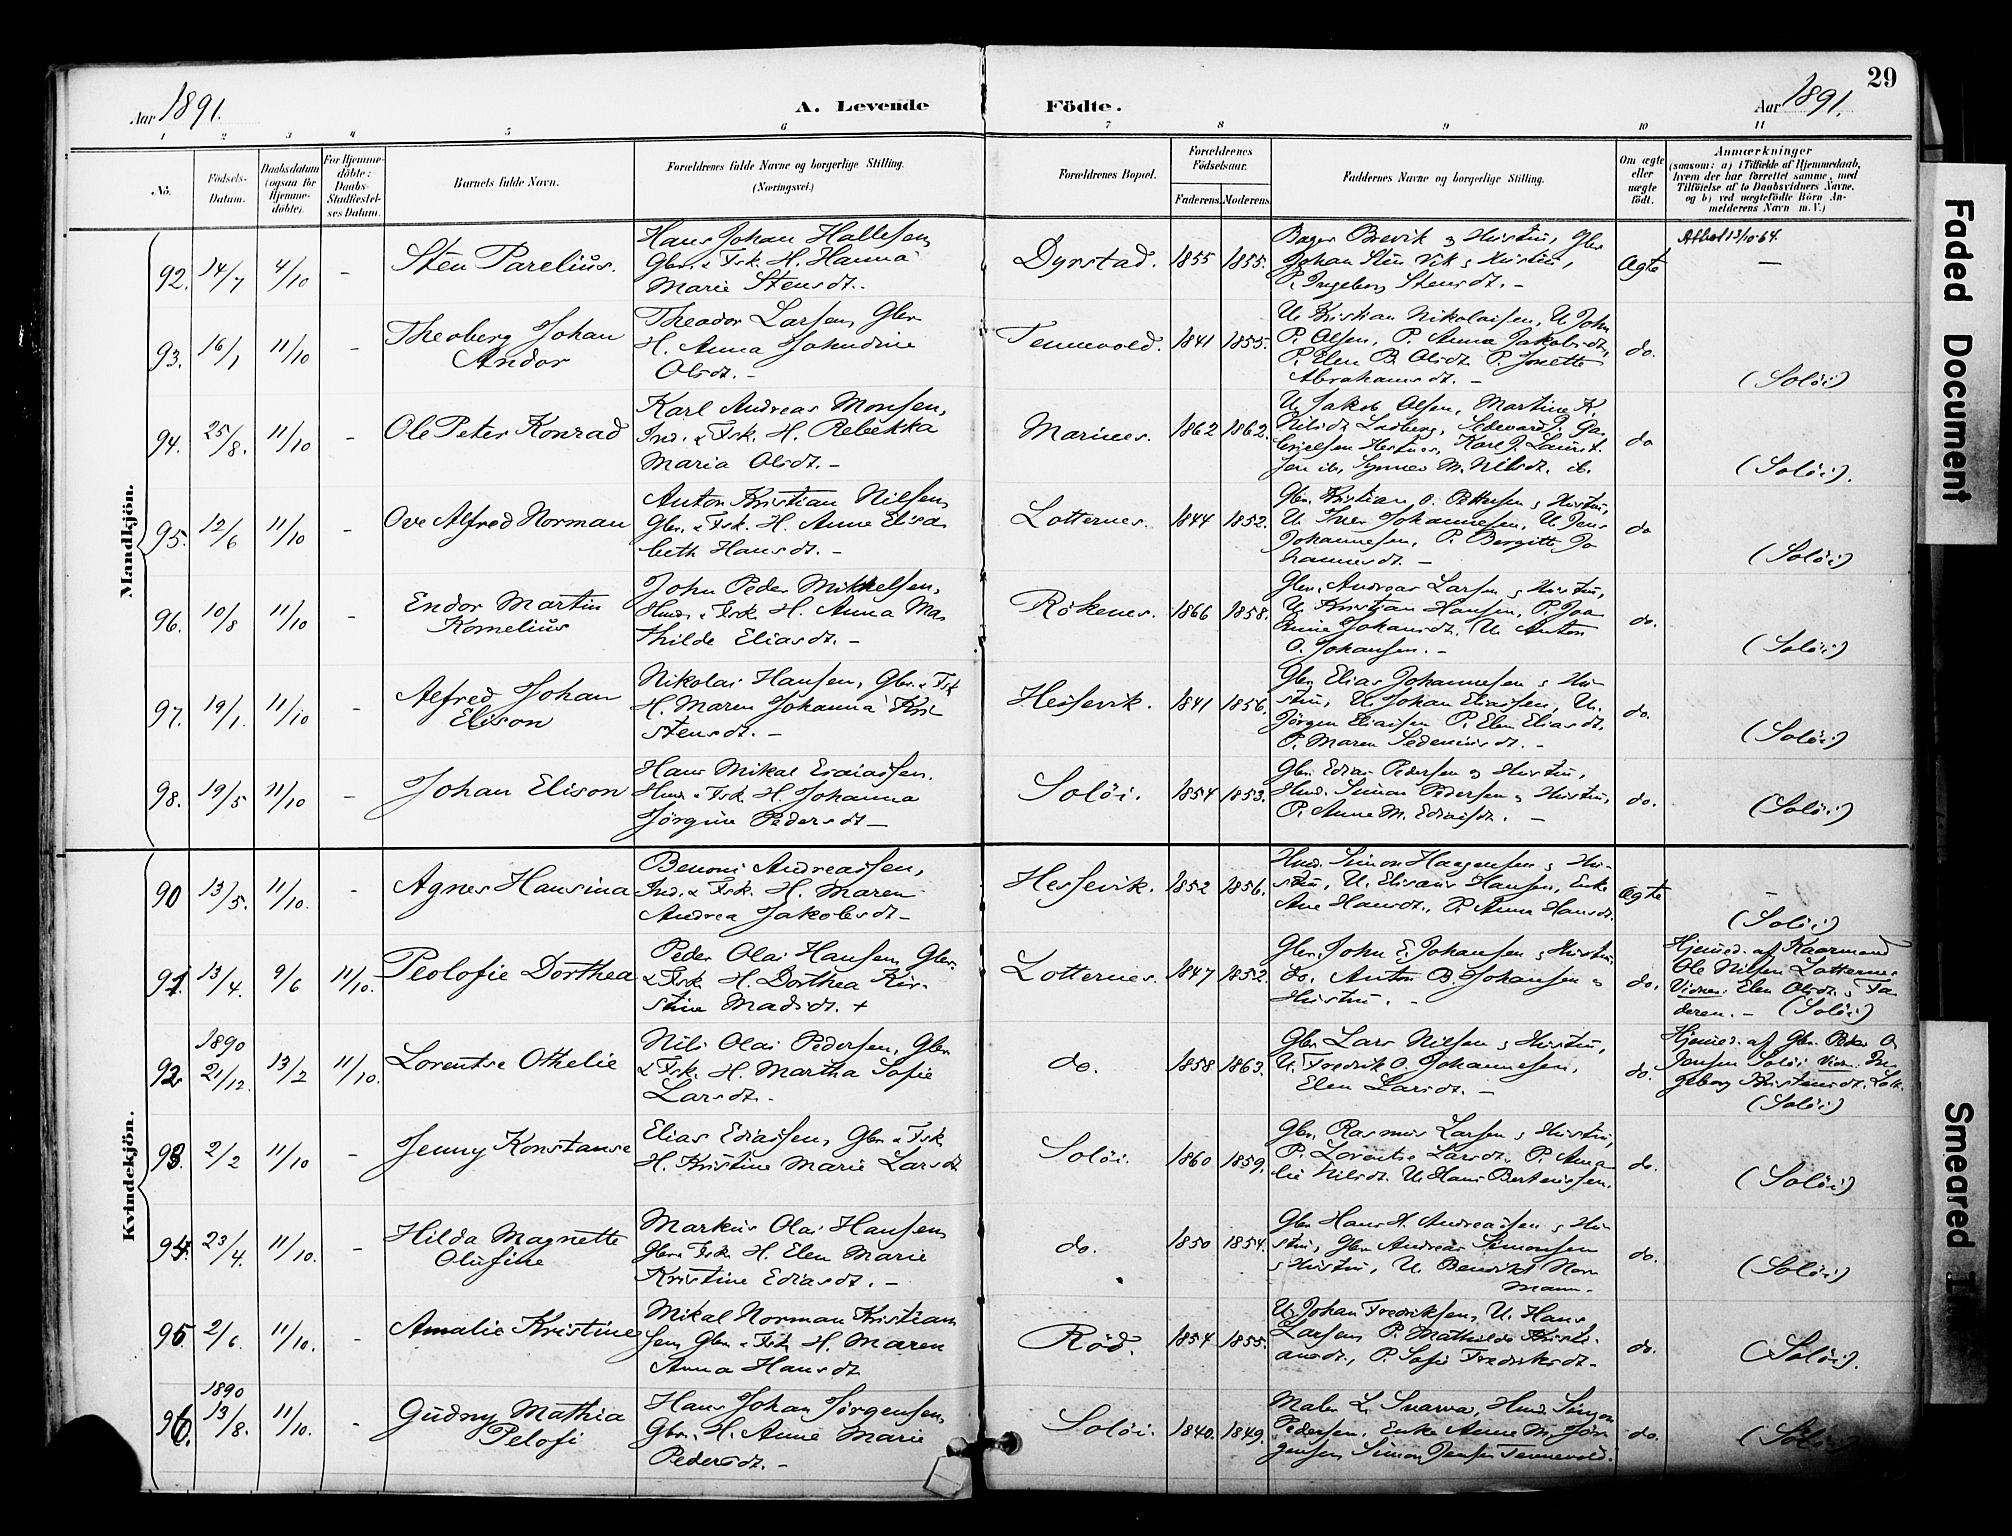 29
Aar 1891.
A. Levende
Födte.
Aar 1891.
1 2 3 4 5 6 7 8 9 10 11
No.
Födsels-
Datum.
Daabsdatum
(ogsaa for
Hjemme-
döbte).
For Hjemme-
döbte:
Daabs-
Stadfæstel-
ses Datum.
Barnets fulde Navn.
Forældrenes fulde Navne og borgerlige Stilling.
(Næringsvei.)
Forældrenes Bopæl.
Forældrenes
Födselsaar.
Faderens.
Moderens.
Faddernes Navne og borgerlige Stilling.
Om ægte
eller
uægte
födt.
Anmærkninger
(saasom: a) i Tilfælde af Hjemmedaab,
hvem der har forrettet samme, med
Tilföielse af to Daabsvidners Navne,
og b) ved uægtefödte Börn An-
melderens Navn m. V.)
Mandkjön.
92. 14/7 4/10 - Sten Parelius.
Hans Johan Hallesen,
Gbr. & Fsk. H. Hanna
Marie Stensdt.
Dyrstad. 1855 1855.
Brevik og Hustru, Gbr
Johan Sten Vik og Hustru,
P. Ingeborg Stensdt. -
Ægte
Attest 13/10-64.
-
93. 16/1 11/10 - Theoberg Johan
Andor
Theodor Larsen, Gbr
H. Anna Johndine
Olsdt. -
Tennevold. 1841 1855.
U. Kristian Nikolaisen, U. John
P. Olsen, P. Anna Jakobsdt,
P. Elen B. Olsdt. P. Jonette
Abrahamsdt. -
do.
(Soløi)
94. 25/8. 11/10 - Ole Peter Konrad
Karl Andreas Monsen,
Ind. & Fsk. H. Rebekka
Maria Olsdt. -
Marines. 1862 1862.
U. Jakob Olsen, Martine K.
Nilsdt
Karl J. Laurit
sen ib, M. Nilsdt. ib.
do
(Soløi).
95. 12/6 11/10 - Ove Alfred Norman
Anton Kristian Nilsen,
Gbr. & Fsk. H. Anne Elisa
beth Hansdt. -
Lotternes. 1844 1852.
Gbr. Kristian O. Pettersen og Hustru,
U. Iver Johannesen, U. Jens
Johannesen, P. Bergitte Jo
hannesdt. -
do
(Soløi)
96. 10/8 11/10 - Endor Martin
Kornelius
John Peder Mikkelsen,
Hmd. & Fsk. H. Anna Ma
thilde Eliasdt. -
Rökenes. 1866 1858.
Gbr. Andreas Larsen og Hustru,
U. Kristian Hansen, P.
Johansdt. U. Anton
O. Johansen. -
do.
(Soløi)
97. 19/1. 11/10 - Alfred Johan
Elison
Nikolai Hansen, Gbr. & Fsk
H. Maren Johanna Kri
stensdt. -
Hesfevik. 1841 1856.
Gbr Elias Johannesen og Hu
stru, U. Johan Eliassen, U.
Jörgen Eliassen P. Elen Eliasdt.
P. Maren Sedeniusdt. -
do.
(Soløi)
98. 19/5 11/10 - Johan Elison
Hans Mikal Esaiassen.
Hmd. & Fsk. H. Johanna
Jörgine Pedersdt -
Soløi. 1854 1853.
Gbr. Edias Pedersen og Hustru,
Hmd. Simon Pedersen og Hustru,
P. Anne M. Ediasdt. -
do.
(Soløi)
Kvindekjön.
90 13/5. 11/10. - Agnes Hansina
Benoni Andreassen,
Ind. & Fsk. H. Maren
Andrea Jakobsdt -
Hesfevik. 1852 1856.
Hmd. Simon Haagensen og Hu-
stru, U. Elisæus Hansen, Enke
Ane Hansdt., P. Anna Hansdt.
Ægte
-
(Soløi)
91. 13/4. 9/6 11/10. Peolofie Dorthea
Peder Olai Hansen, Gbr.
& Fsk. H. Dorthea Kir-
stine Madsdt. +
Lotternes. 1847 1852.
Gbr. John E. Johansen og Hustru
do. Anton B. Johansen og
Hustru. -
do.
Hjemmed. af Kaarmand
Ole Nilsen Lotternes
Vidner: Elen Olsdt. og Fa
deren. - (Soløi)
1890
92. 21/12. 13/2 11/10. Lorentse Othelie
Nils Olai Pedersen, Gbr
& Fsk. H. Martha Sofie
Larsdt. -
do. 1858 1863.
Gbr Lars Nilsen og Hustru,
U. Fredrik O. Johannesen,
Elen Larsdt. -
do.
Hjemmed. af Gbr. Peder O
Jensen Soløi Vidn. In
geborg Kristensdt. Lott.
(Soløi)
93. 2/2 11/10 - Jenny Konstanse
Elias Ediassen, Gbr & Fsk
H. Kristine Marie Larsdt
Soløi. 1860 1859.
Gbr. Rasmus Larsen og Hustru,
P. Lorentse Larsdt. P. Ama
lie Nilsdt. U. Hans Berteussen.
do.
(Soløi)
94. 23/4. 11/10. - Hilda Magnette
Olufine
Markus Olai Hansen
Gbr & Fsk H. Elen Marie
Kristine Ediasdt. -
do. 1850 1854.
Gbr Hans H. Andreassen og Hu-
stru, Gbr Andreas Simonsen
og Hustru, U. Benedikt Nor
mann.
do.
(Soløi)
95 2/6. 11/10. - Amalie Kristine
Mikal Norman Kristian
sen, Gbr. & Fsk H. Maren
Anna Hansdt
Röd. 1854 1855.
U. Johan Fredriksen, U. Hans
Larsen, P. Mathilde Kristi-
ansdt., P. Sofie Fredriksdt -
do.
(Soløi).
1890
96. 13/8. 11/10. - Gudny Mathia
Pelofi
Hans Johan Jörgensen,
Gbr. H. Anne Marie
Pedersdt. -
Soløi. 1840. 1849.
Maler L. Snarva, Hmd. Simon
Pedersen, Enke Anne M. Jör
gensen Simon Jensen Tennevold.
do.
(Soløi)
Faded Document
Smeared